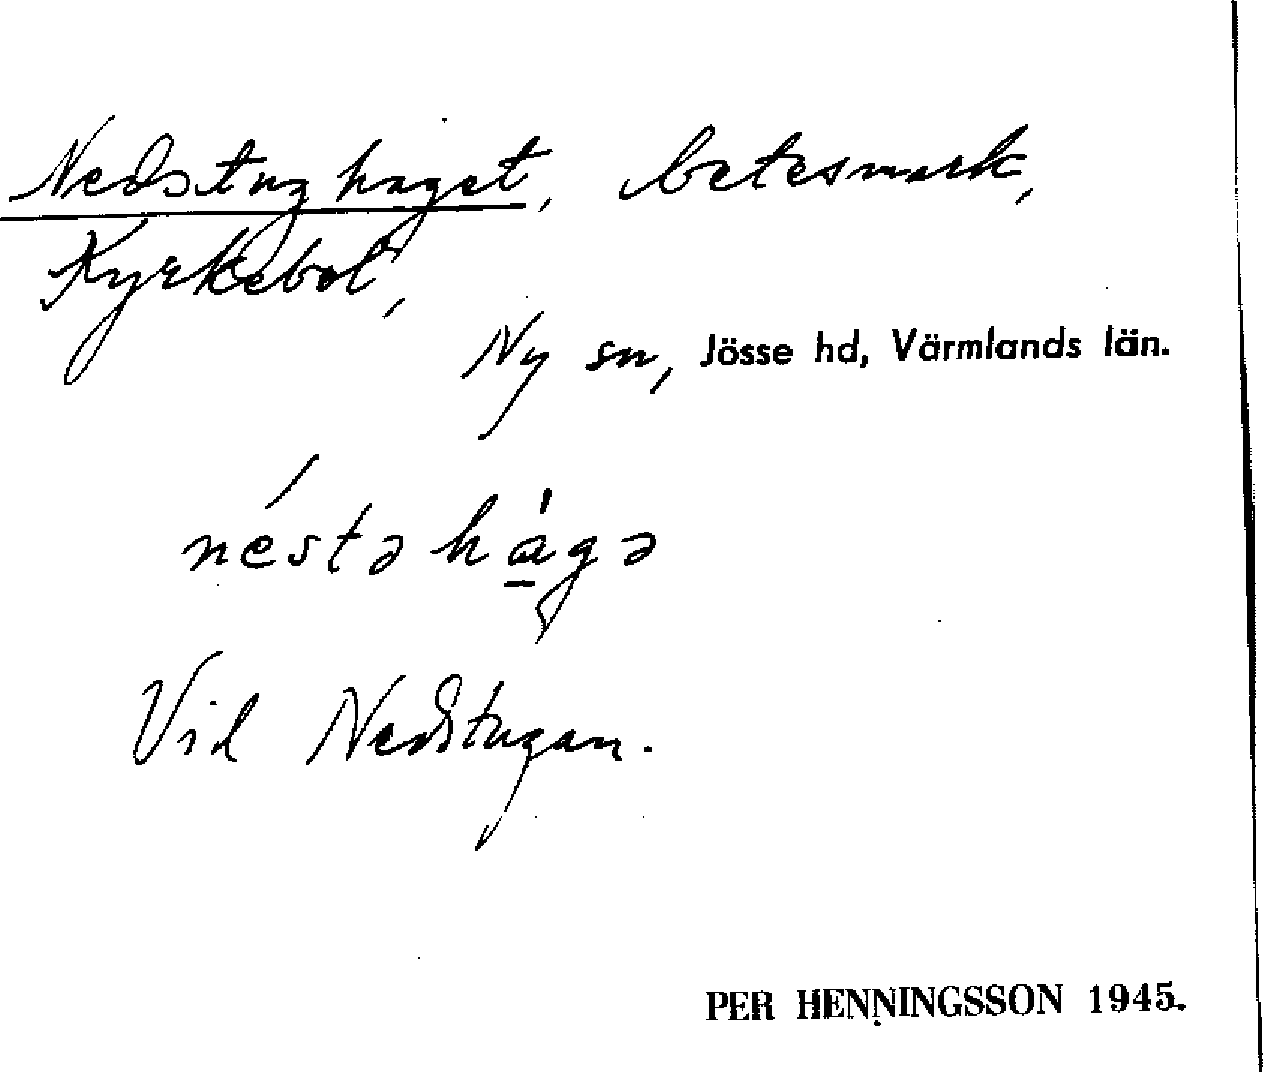 Nedstughaget, betesmark,
Kyrkebol,
Ny sn, Jösse hd, Värmlands län.
néstəhàgə
Vid Nedstugan.
PER HENNINGSSON 1945.